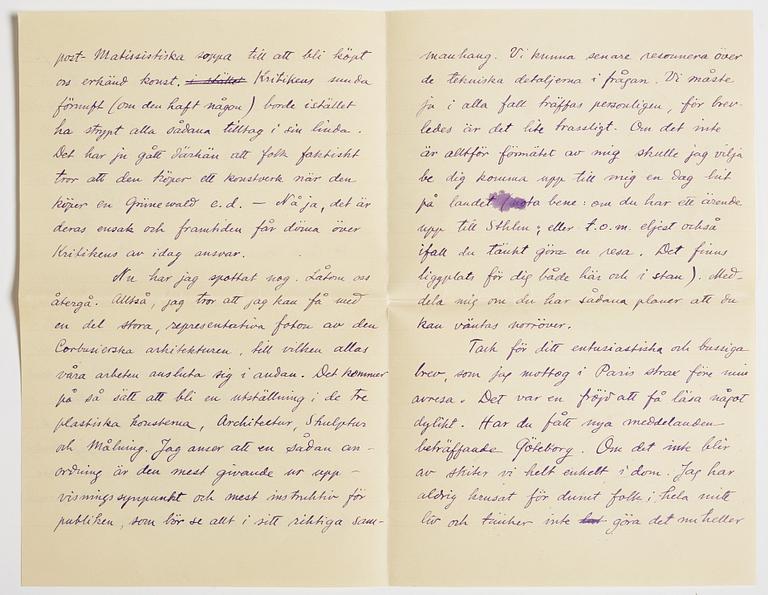 post-Matissistiska soppa till att bli köpt
oss erkänd konst. i stället Kritikens sunda
förnuft (om den haft någon) borde istället
ha strypt alla sådana tilltag i sin linda.
Det har ju gått därhän att folk faktiskt
tror att den köper ett konstverk när den
köper en Grünewald e.d. — Nå ja, det är
deras ensak och framtiden får döma över
Kritikens av idag ansvar.
Nu har jag spottat nog. Låtom oss
återgå. Alltså, jag tror att jag kan få med
en del stora, representativa foton av den
Corbusierska arkitekturen, till vilken allas
våra arbeten ansluta sig i andan. Det kommer
på så sätt att bli en utställning i de tre
plastiska konsterna, Architectur, Skulptur
och Målning. Jag anser att en sådan an-
ordning är den mest givande ur upp-
visningssynpunkt och mest instruktiv för
publiken, som bör se allt i sitt riktiga sam-
manhang. Vi kunna senare resonnera över
de tekniska detaljerna i frågan. Vi måste
ju i alla fall träffas personligen, för brev-
ledes är det lite trassligt. Om det inte
är alltför förmätet av mig skulle jag vilja
be dig komma upp till mig en dag hit
på landet (nota bene: om du har ett ärende
upp till Sthlm; eller t.o.m. eljest också
ifall du tänkt göra en resa. Det finns
liggplats för dig både här och i stan). Med-
dela mig om du har sådana planer att du
kan väntas norröver.
Tack för ditt entusiastiska och bussiga
brev, som jag mottog i Paris strax före min
avresa. Det var en fröjd att få läsa något
dylikt. Har du fått nya meddelanden
beträffande Göteborg. Om det inte blir
av skiter vi helt enkelt i dom. Jag har
aldrig krusat för dumt folk i hela mitt
liv och tänker inte göra det nu heller